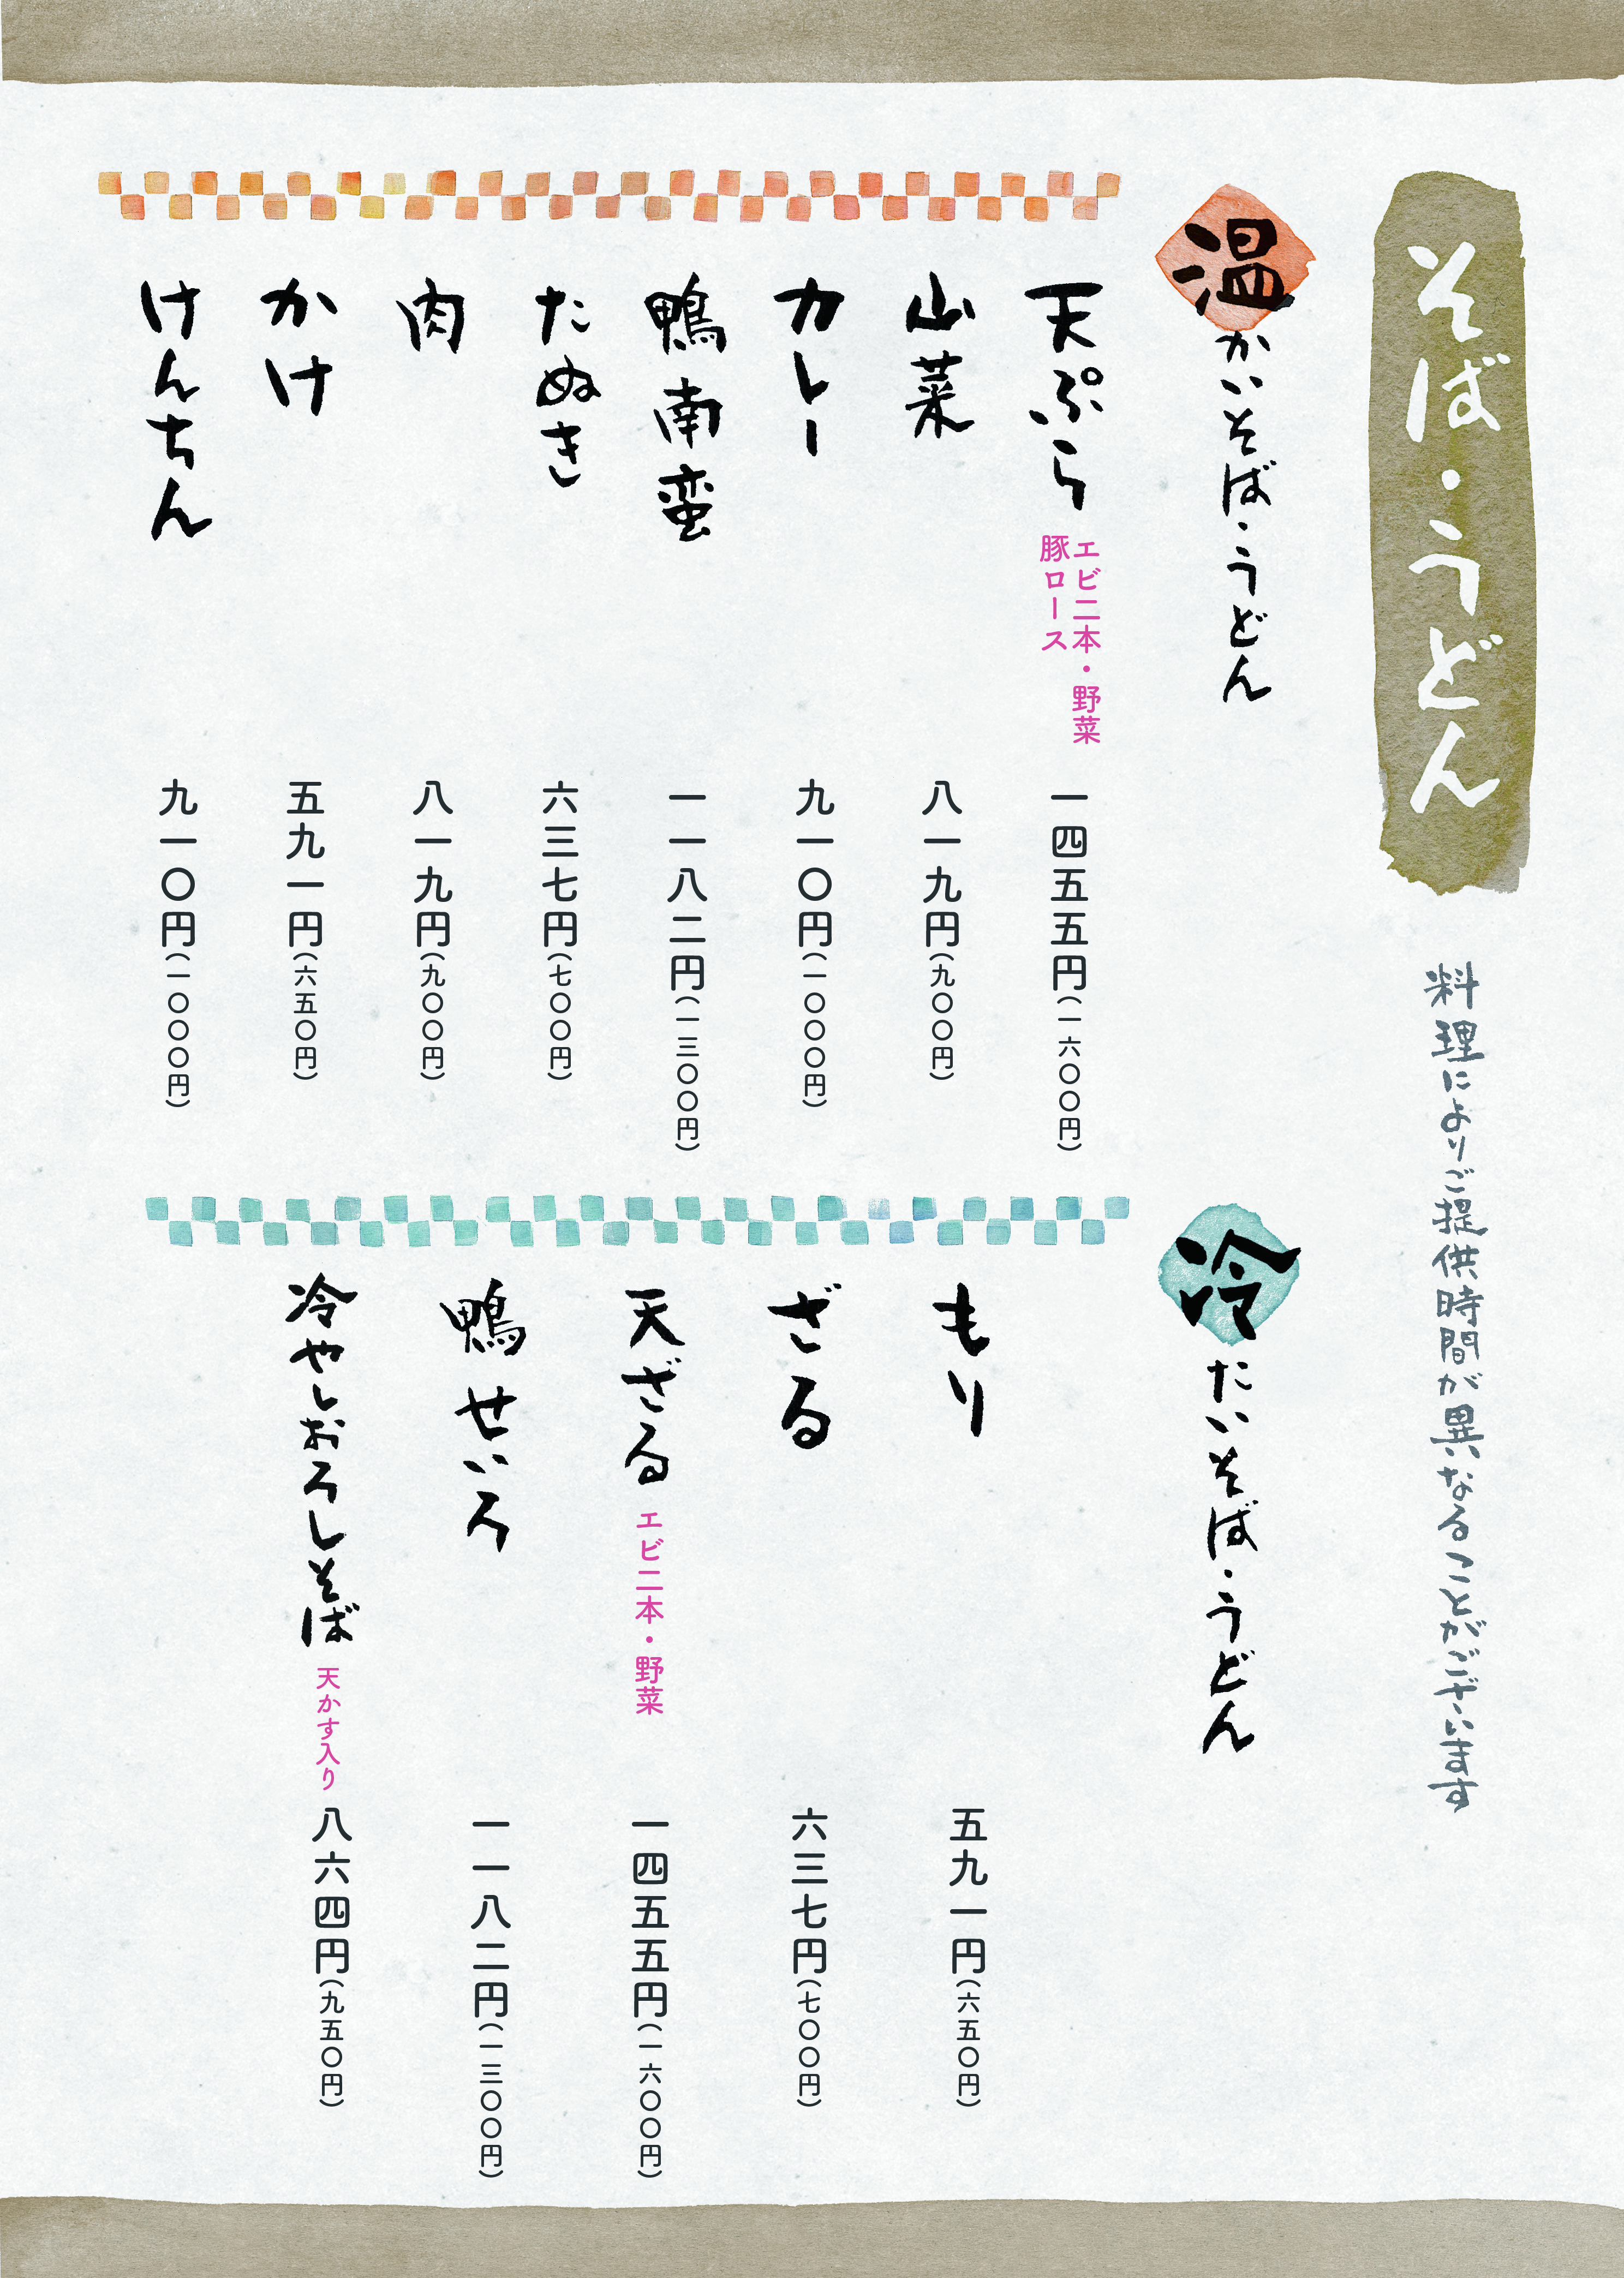 そば・うどん
料理によりご提供時間が異なることがございます
温かいそば・うどん
天ぷら
エビ二本・野菜
豚ロース
一四五五円(一六〇〇円)
山菜
八一九円(九〇〇円)
カレー
九一〇円(一〇〇〇円)
鴨南蛮
一一八二円(一三〇〇円)
たぬき
六三七円(七〇〇円)
肉
八一九円(九〇〇円)
かけ
五九一円(六五〇円)
けんちん
九一〇円(一〇〇〇円)
冷たいそば・うどん
もり
五九一円(六五〇円)
ざる
六三七円(七〇〇円)
天ざる
エビ二本・野菜
一四五五円(一六〇〇円)
鴨せいろ
一一八二円(一三〇〇円)
冷やしおろしそば
天かす入り
八六四円(九五〇円)